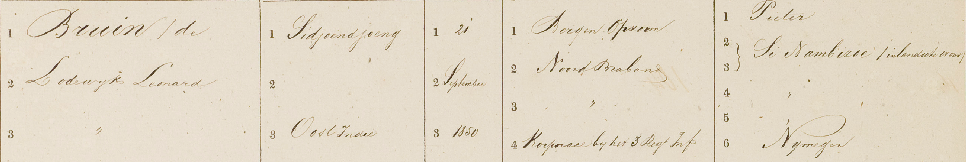 1 Bruin / de
2 Lodewijk Leonard
3 "
1 Sidjoendjoeng
2
3 Oost Indie
1 21
2 September
3 1850
1 Bergen Opzoom
2 Noord Braband
3 "
4 Korporaal by het 3 Regt Inf
1 Pieter
2
3 Si Nambezee / inlandsche vrouw /
4 "
5
6 Nymegen